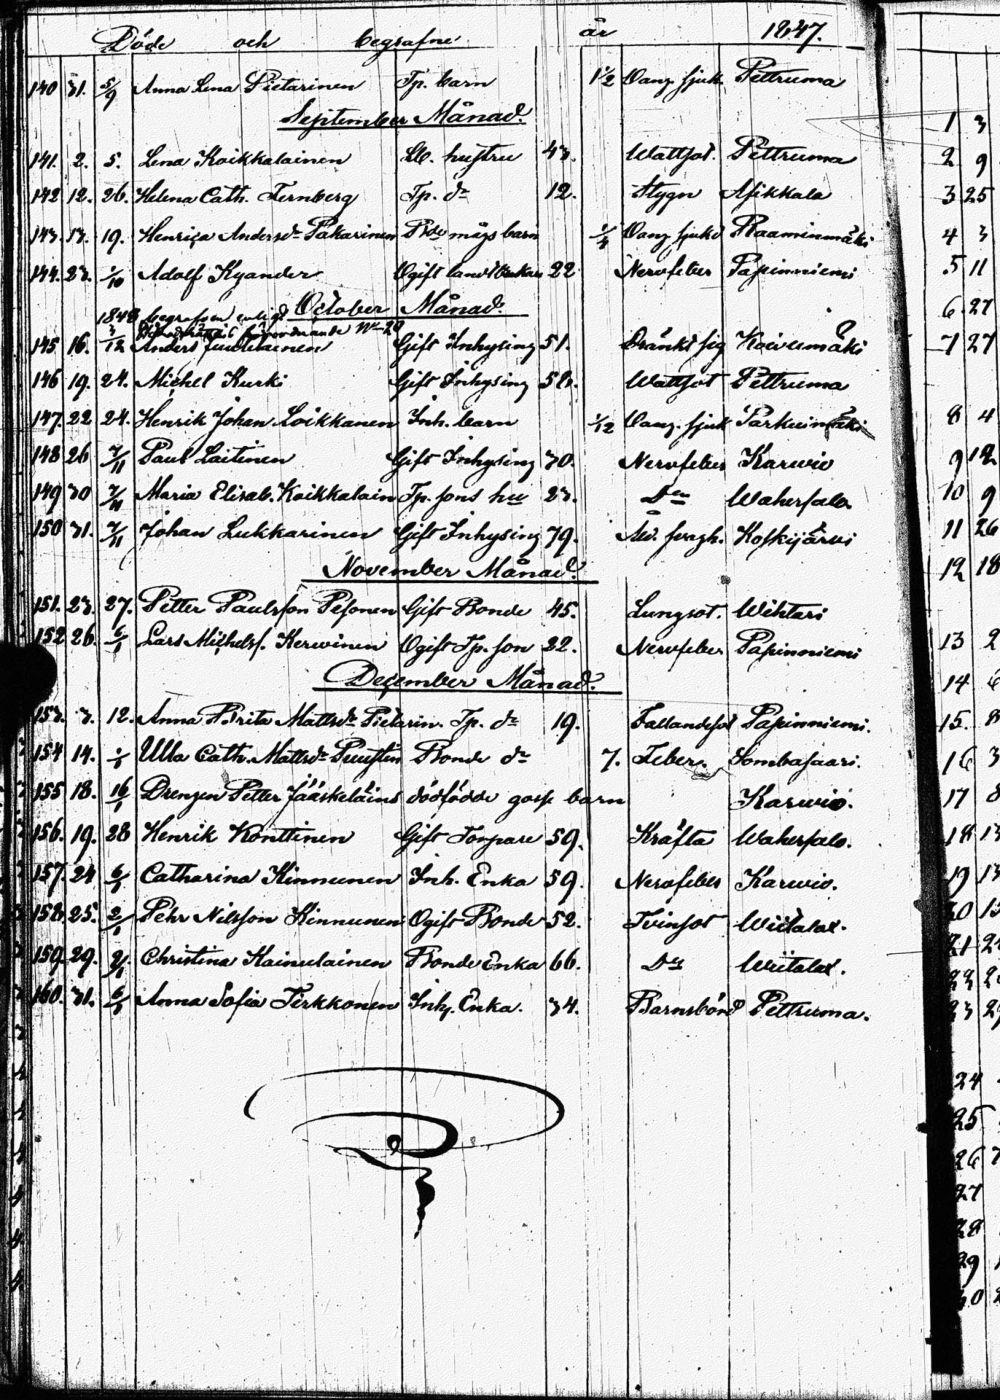 Döde och begrafne år 1847.
140 31. 5/9 Anna Lena Pietarinen Tp. barn 1 1/2 Oang. sjuk. Pettruma
September Månad.
141. 2. 5. Lena Koikkalainen hustru 43. Wattsot. Pettruma
142 12. 26. Helena Cath. Ternberg Tp. dr 12. Stygn Afikkala
143. 13. 19. Henrica Andersdr Pakarinen barn Oang. sjukd Raaminmäki
144. 23. 1/10 Adolf Kyander Ogift 22 Nervfeber Papinniemi
October Månad.
1848 begrafven enligt
145 16. 3/12 Anders Gift Inhysing 51. Dränkt sig Koivumäki
146 19. 24. Michel Kurki Gift Inhysing 58. Wattsot Pettruma
147. 22 24. Henrik Johan Loikkanen Inh. barn 1/12 Oang. sjuk Parkuinmäki
148 26 7/11 Paul Laitinen Gift Inhysing 30. Nervfeber Karvio
149 30 7/11 Maria Elisab. Koikkalain Tp. sons hu 23. Do Wahersalo
150 31. 7/11 Johan Lukkarinen Gift Inhysing 79. Koskijärvi
November Månad.
151. 23. 27. Petter Paulsson Pesonen Gift Bonde 45. Lungsot. Wihtari
152 26. 6/1 Lars Michelss. Kervinen Ogift Tp. son 22. Nervfeber Papinniemi
December Månad.
153. 3. 12. Anna Brita Mattsdr Pietarin. Tp. dr 19. Fallandsot Papinniemi.
154 14. Ulla Cath. Mattsdr Puustin Bonde dr 7. Feber. Sombasaari.
155 18. 16/1 Drengen Petter Jääskeläins dödfödde gosse barn Karvio.
156. 19. 28 Henrik Konttinen Gift Torpare 59. Kräfta Wahersalo.
157. 24 6/1 Catharina Kinnunen Inh. Enka 59. Nervfeber Karvio.
158. 25. 2/1 Pehr Nilsson Kinnunen Ogift Bonde 52. Tvinsot Wiitalax.
159. 29. 2/1 Christina Kainulainen Bonde Enka 66. Do Wiitalax.
160. 31. 6/1 Anna Sofia Tirkkonen Inhy. Enka. 34. Barnsbörd Pettruma.
1 3
2 9
3 25
4 3
5 11
6 27
7 27
8 4
9 12
10 9
11 26
12 18
13 2
14 6
15. 8
16 3
17 8
18 13
19 13
20
21
22
23
24
25
26
27
28
29